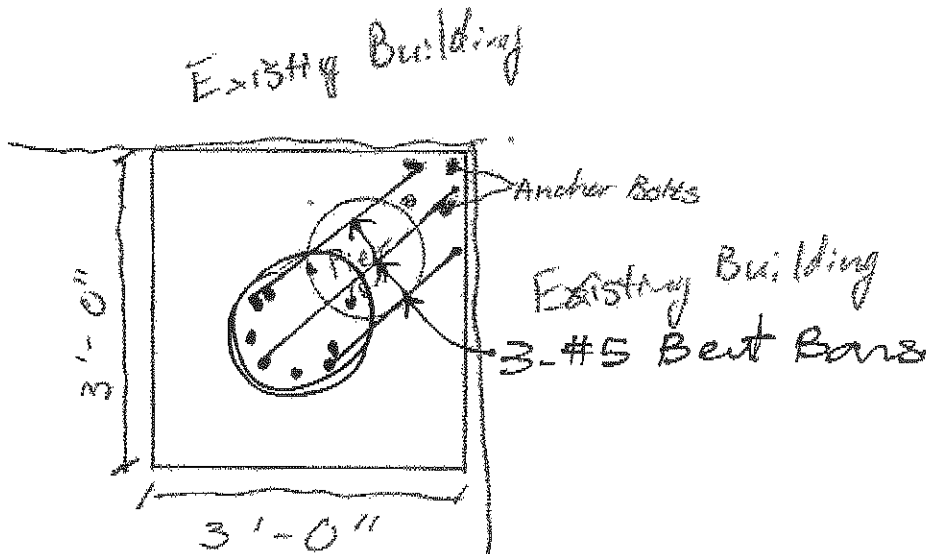 Existing Building
Anchor Bolts
Pier
3'-0"
Existing Building
3-#5 Bent Bars
3'-0"